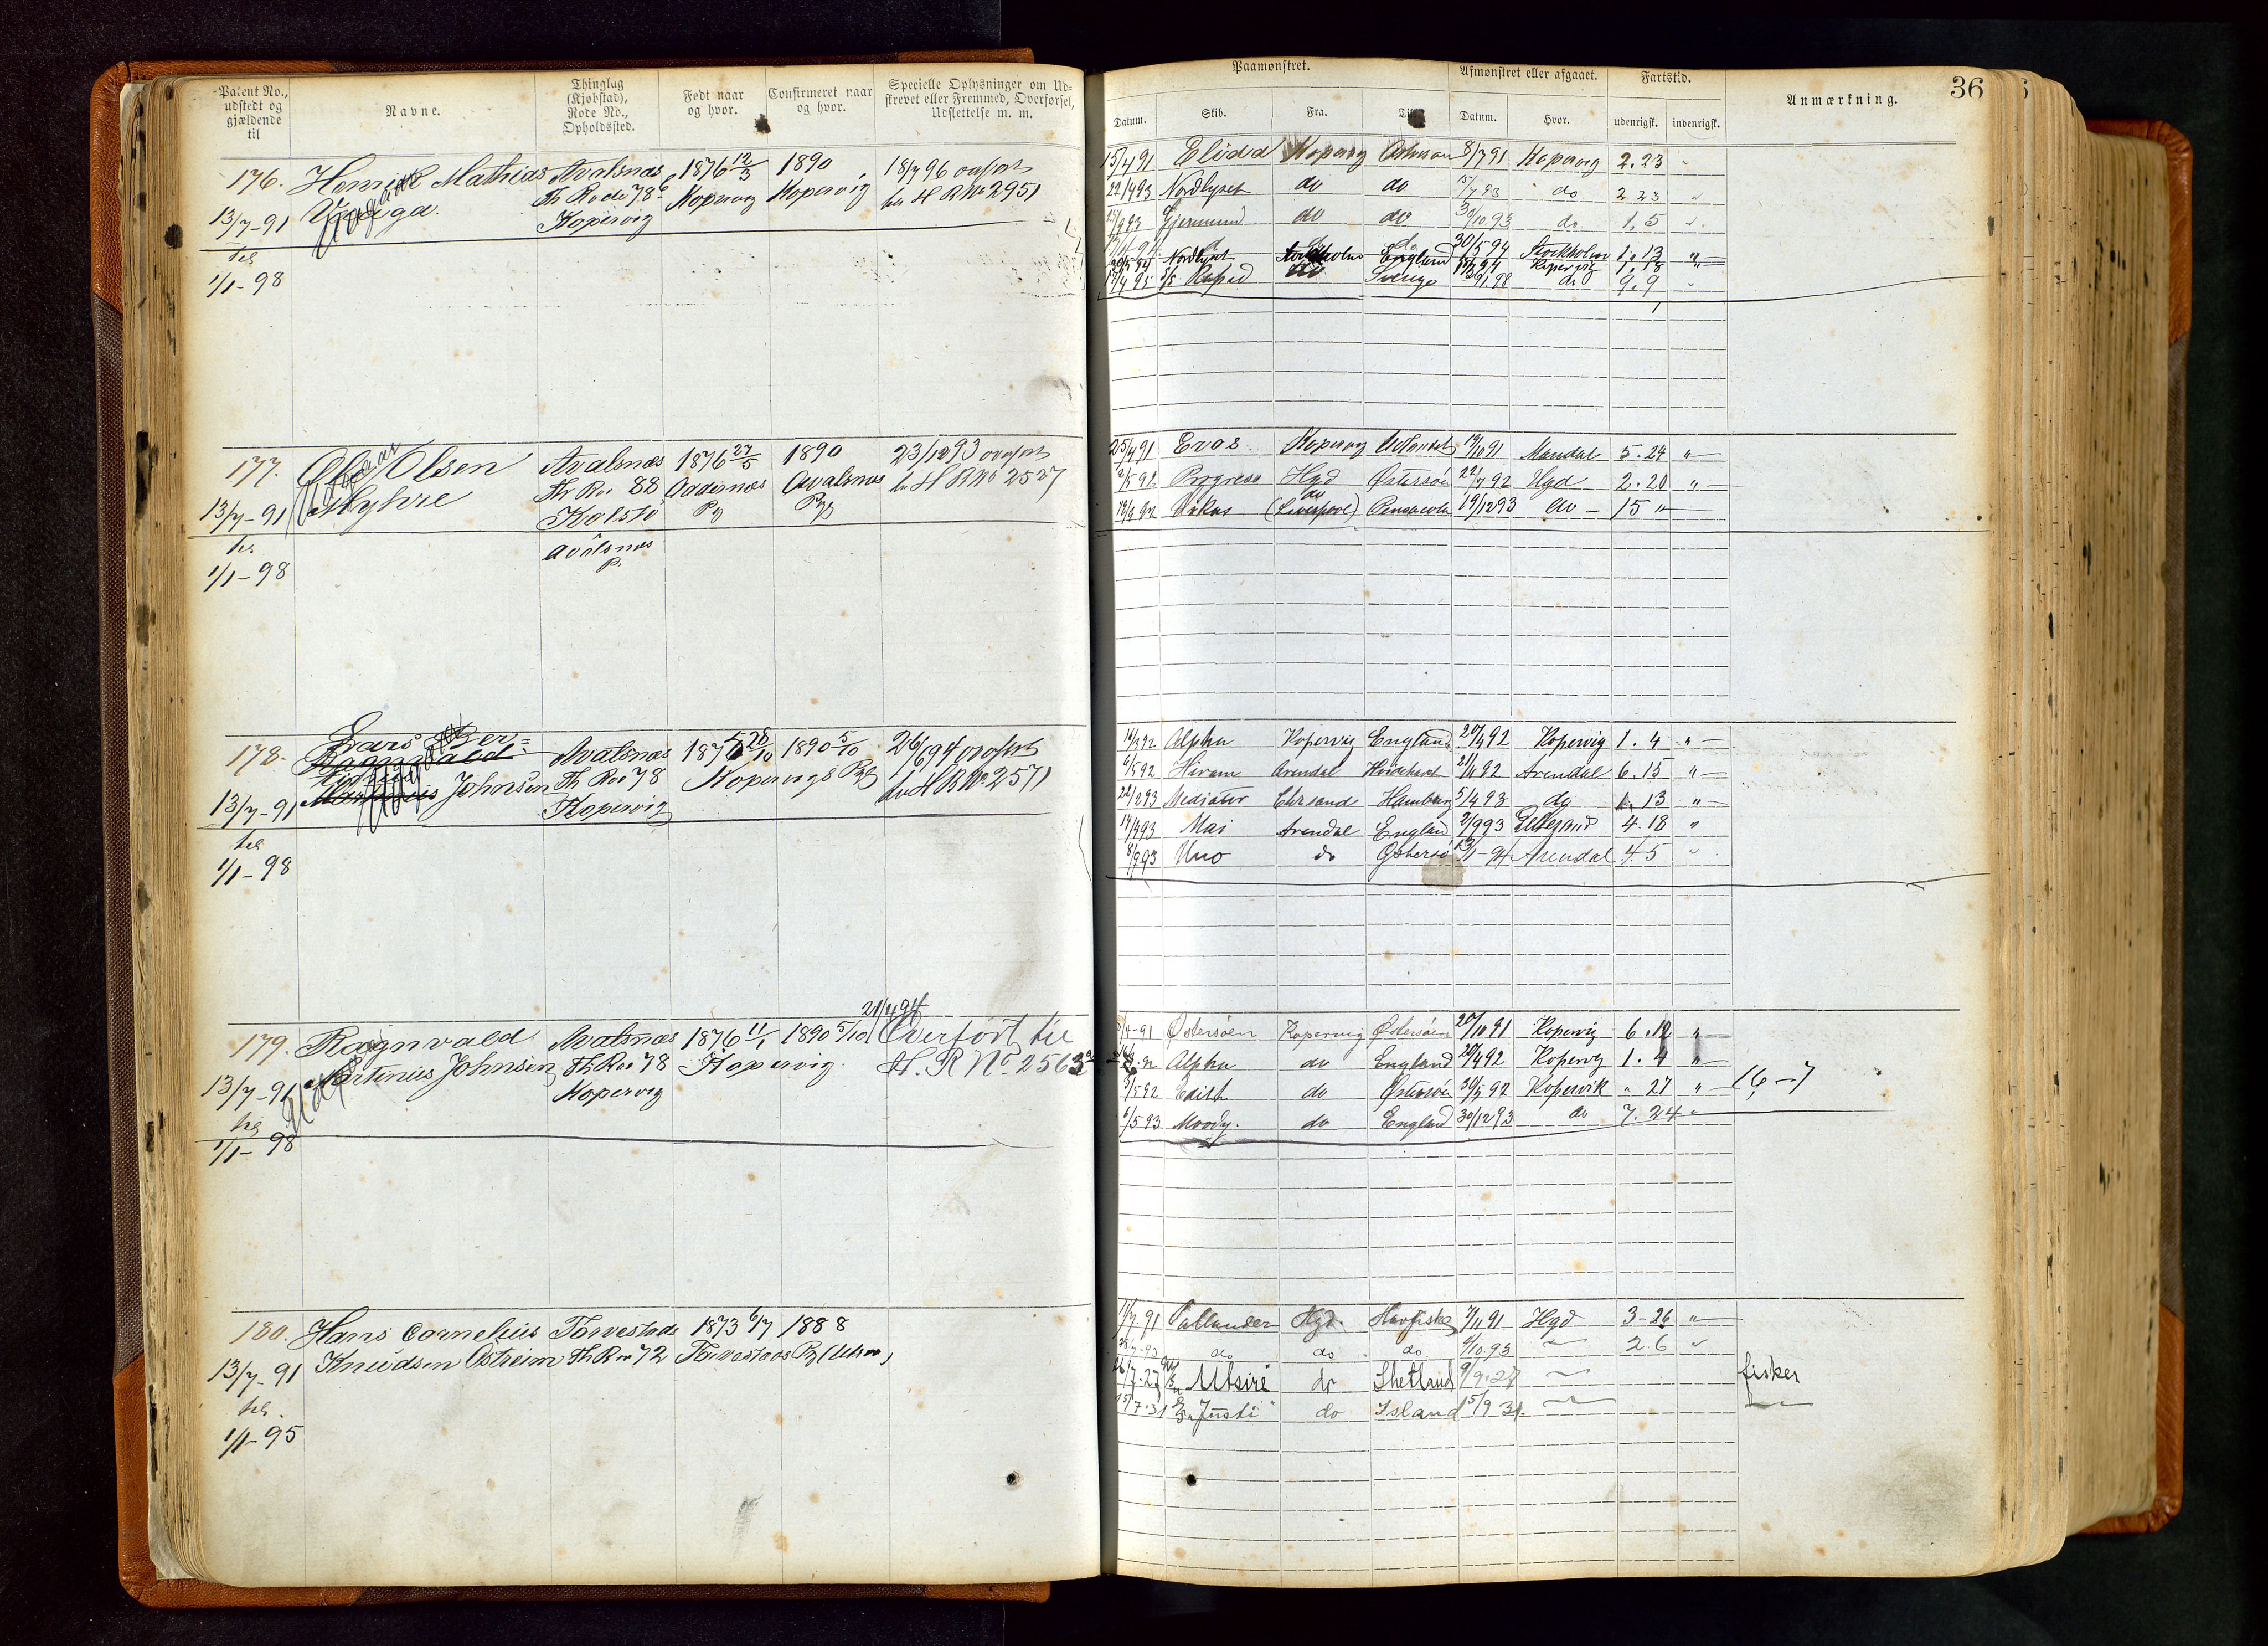 Patent No., udstedt og gjældende til
Navne.
Thinglag (Kjøbstad), Rode No., Opholdssted.
Født naar og hvor.
Confirmeret naar og hvor.
Specielle Oplysninger om Udskrevet eller Fremmed, Overførsel, Udslettelse m. m.
Paamønstret.
Afmønstret eller afgaaet.
Fartstid.
Anmærkning.
36
Datum.
Skib.
Fra.
Til.
Datum.
Hvor.
udenrigsk.
indenrigsk.
176. Henrik Mathias Avalsnæs 1876 12/3 1890 18/7 96 overført
13/7-91 Vaaga. Th Rode 78 Kopervig Kopervig til H R No 2951
til Kopervig
1/1-98
15/4 91 Elida Kopervig 8/7 91 Kopervig 2. 23 "
22/4 93 Nordlyset do do 15/7 93 do. 2 23 "
Gjermund do do 30/10 93 do. 1. 5 "
30/5 94 Stockholm 1. 13 "
Nordlyset England Kopervig 1. 18 "
Rapid do Sverige 98 do 9. 9 "
177. Ole Olsen Avalsnæs 1876 27/5 1890 23/12 93 overført
13/7-91 Myhre Th Ro 88 Avalsnæs til H R No 2527
til Kolstø Pg Pg
1/1-98 Avalsnæs
P.
25/4 91 Kopervig Udlandet 19/10 91 Mandal 5. 24 "
5 92 Progress Hgd Østersøn 22/7 92 Hgd 2. 20 "
do
(Liverpool) Pensacola 19/12 93 do - 15 "
178. Lars
Ragnvald Avalsnæs 28/10 1890 5/10 26/6 94 overført
13/7-91 Johnsen Th Ro 78 Kopervigs Pg til H R No 2571
til Kopervig
1/1-98
92 Alpha Kopervig England 20/4 92 Kopervig 1. 4 "
6/5 92 Hiram Arendal 21/11 92 Arendal 6. 15 "
22/2 93 Mediator Chrsand Hamburg 5/4 93 do 1. 13 "
14/4 93 Mai Arendal England 2/9 93 Lillesand 4. 18 "
8/9 93 Uno do Østersø /1-94 Arendal 4. 5 "
21/4 94
179. Ragnvald Avalsnæs 1876 11/1 1890 5/10 Overført til
13/7-91 Martinius Johnsen Th Ro 78 Kopervig. H. R No. 2563
til Kopervig
1/1-98
/4-91 Østersøen Kopervig Østersøen 20/10 91 Kopervig 6. 12 "
92 Alpha do England 20/4 92 Kopervig 1. 4 "
/5 92 Edith do Østersøn 30/5 92 Kopervik " 27 " 16-7
/5 93 Moody. do England 30/12 93 do 7. 24 "
180. Hans Cornelius Torvestads 1873 6/7 1888
13/7-91 Knudsen Østreim Th Ro 72 Torvestads Pg (Utsire)
til
1/1-95
11/7-91 Pallander Hgd. Havfiske 7/11 91 Hgd 3-26 "
7-93 do do do /10 93 2. 6 "
26/7-27 Utsire do Shetland 9/9-27 fisker
15/7-31 "Justi" do Island 15/9 31.